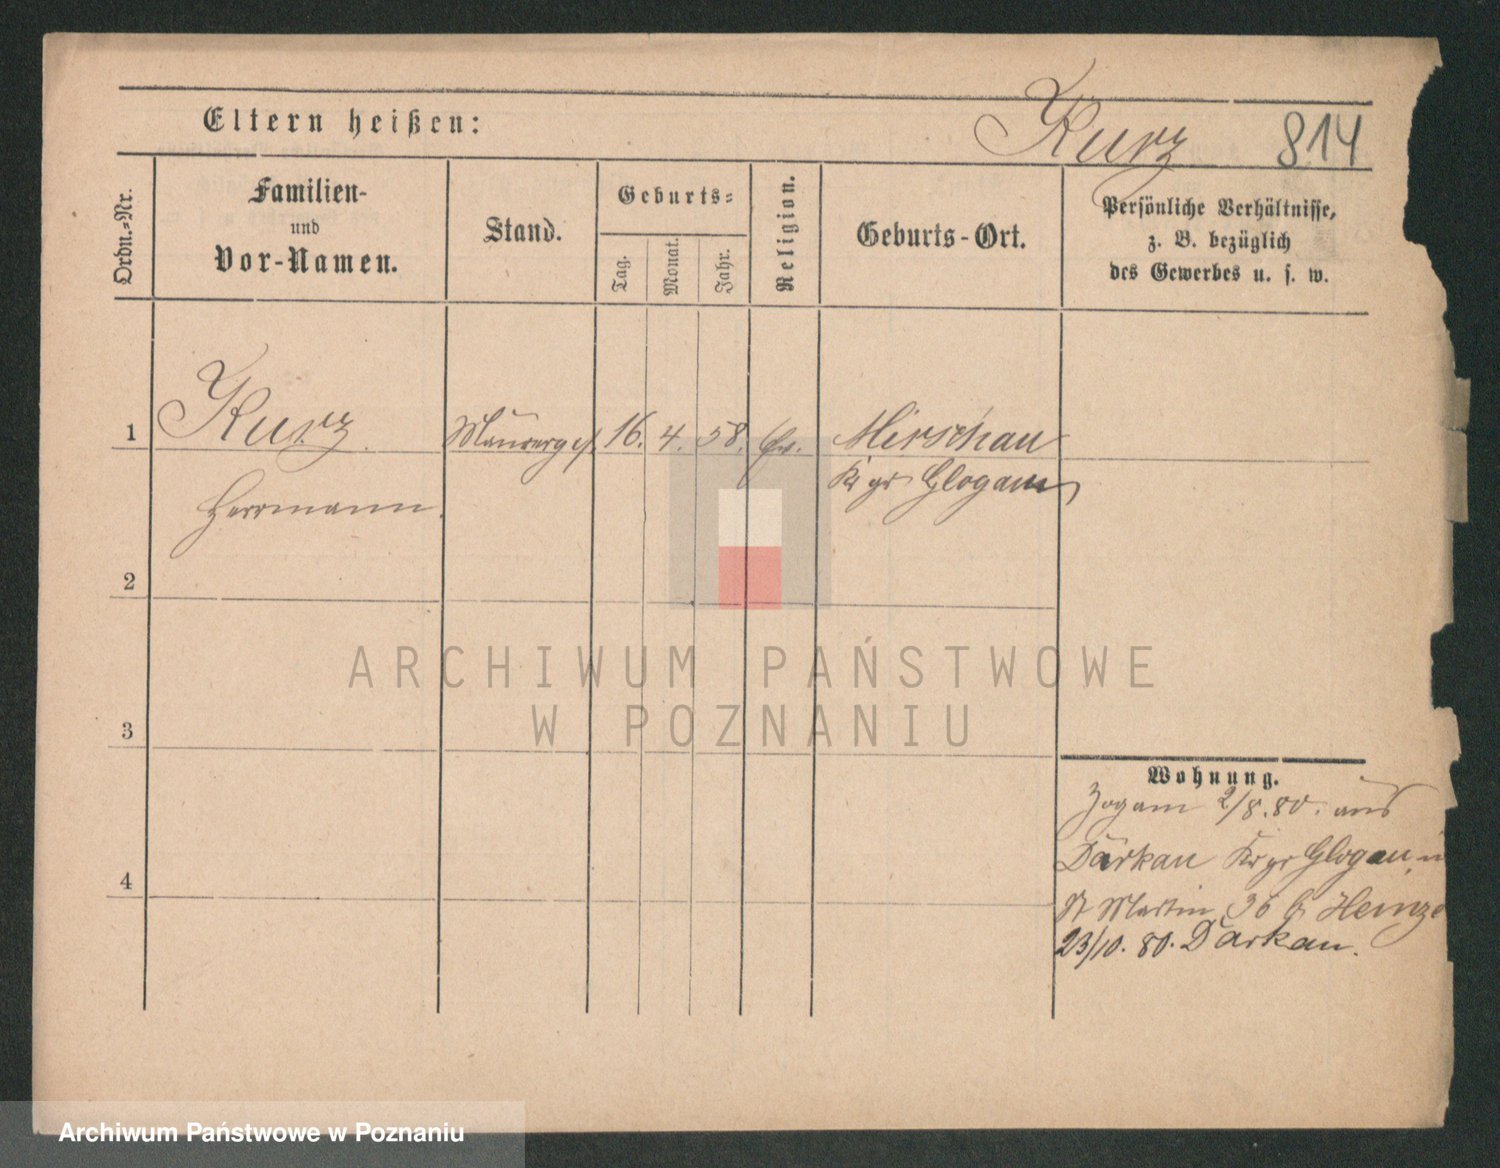 Eltern heißen:
Kurz 814
Ordn.-Nr.
Familien-
und
Vor-Namen.
Stand.
Geburts-
Tag.
Monat.
Jahr.
Religion.
Geburts-Ort.
Persönliche Verhältnisse,
z. B. bezüglich
des Gewerbes u. s. w.
1 Kurz Maurerges. 16. 4. 58. Ev. Mirschau
Kr gr Glogau
Herrmann
2
3
4
ARCHIWUM PAŃSTWOWE
W POZNANIU
Wohnung.
Zogam 2/8.80. aus
Darkau Kr gr Glogau n
St Martin 36 b Heinze
23/10. 80. Darkau.
Archiwum Państwowe w Poznaniu